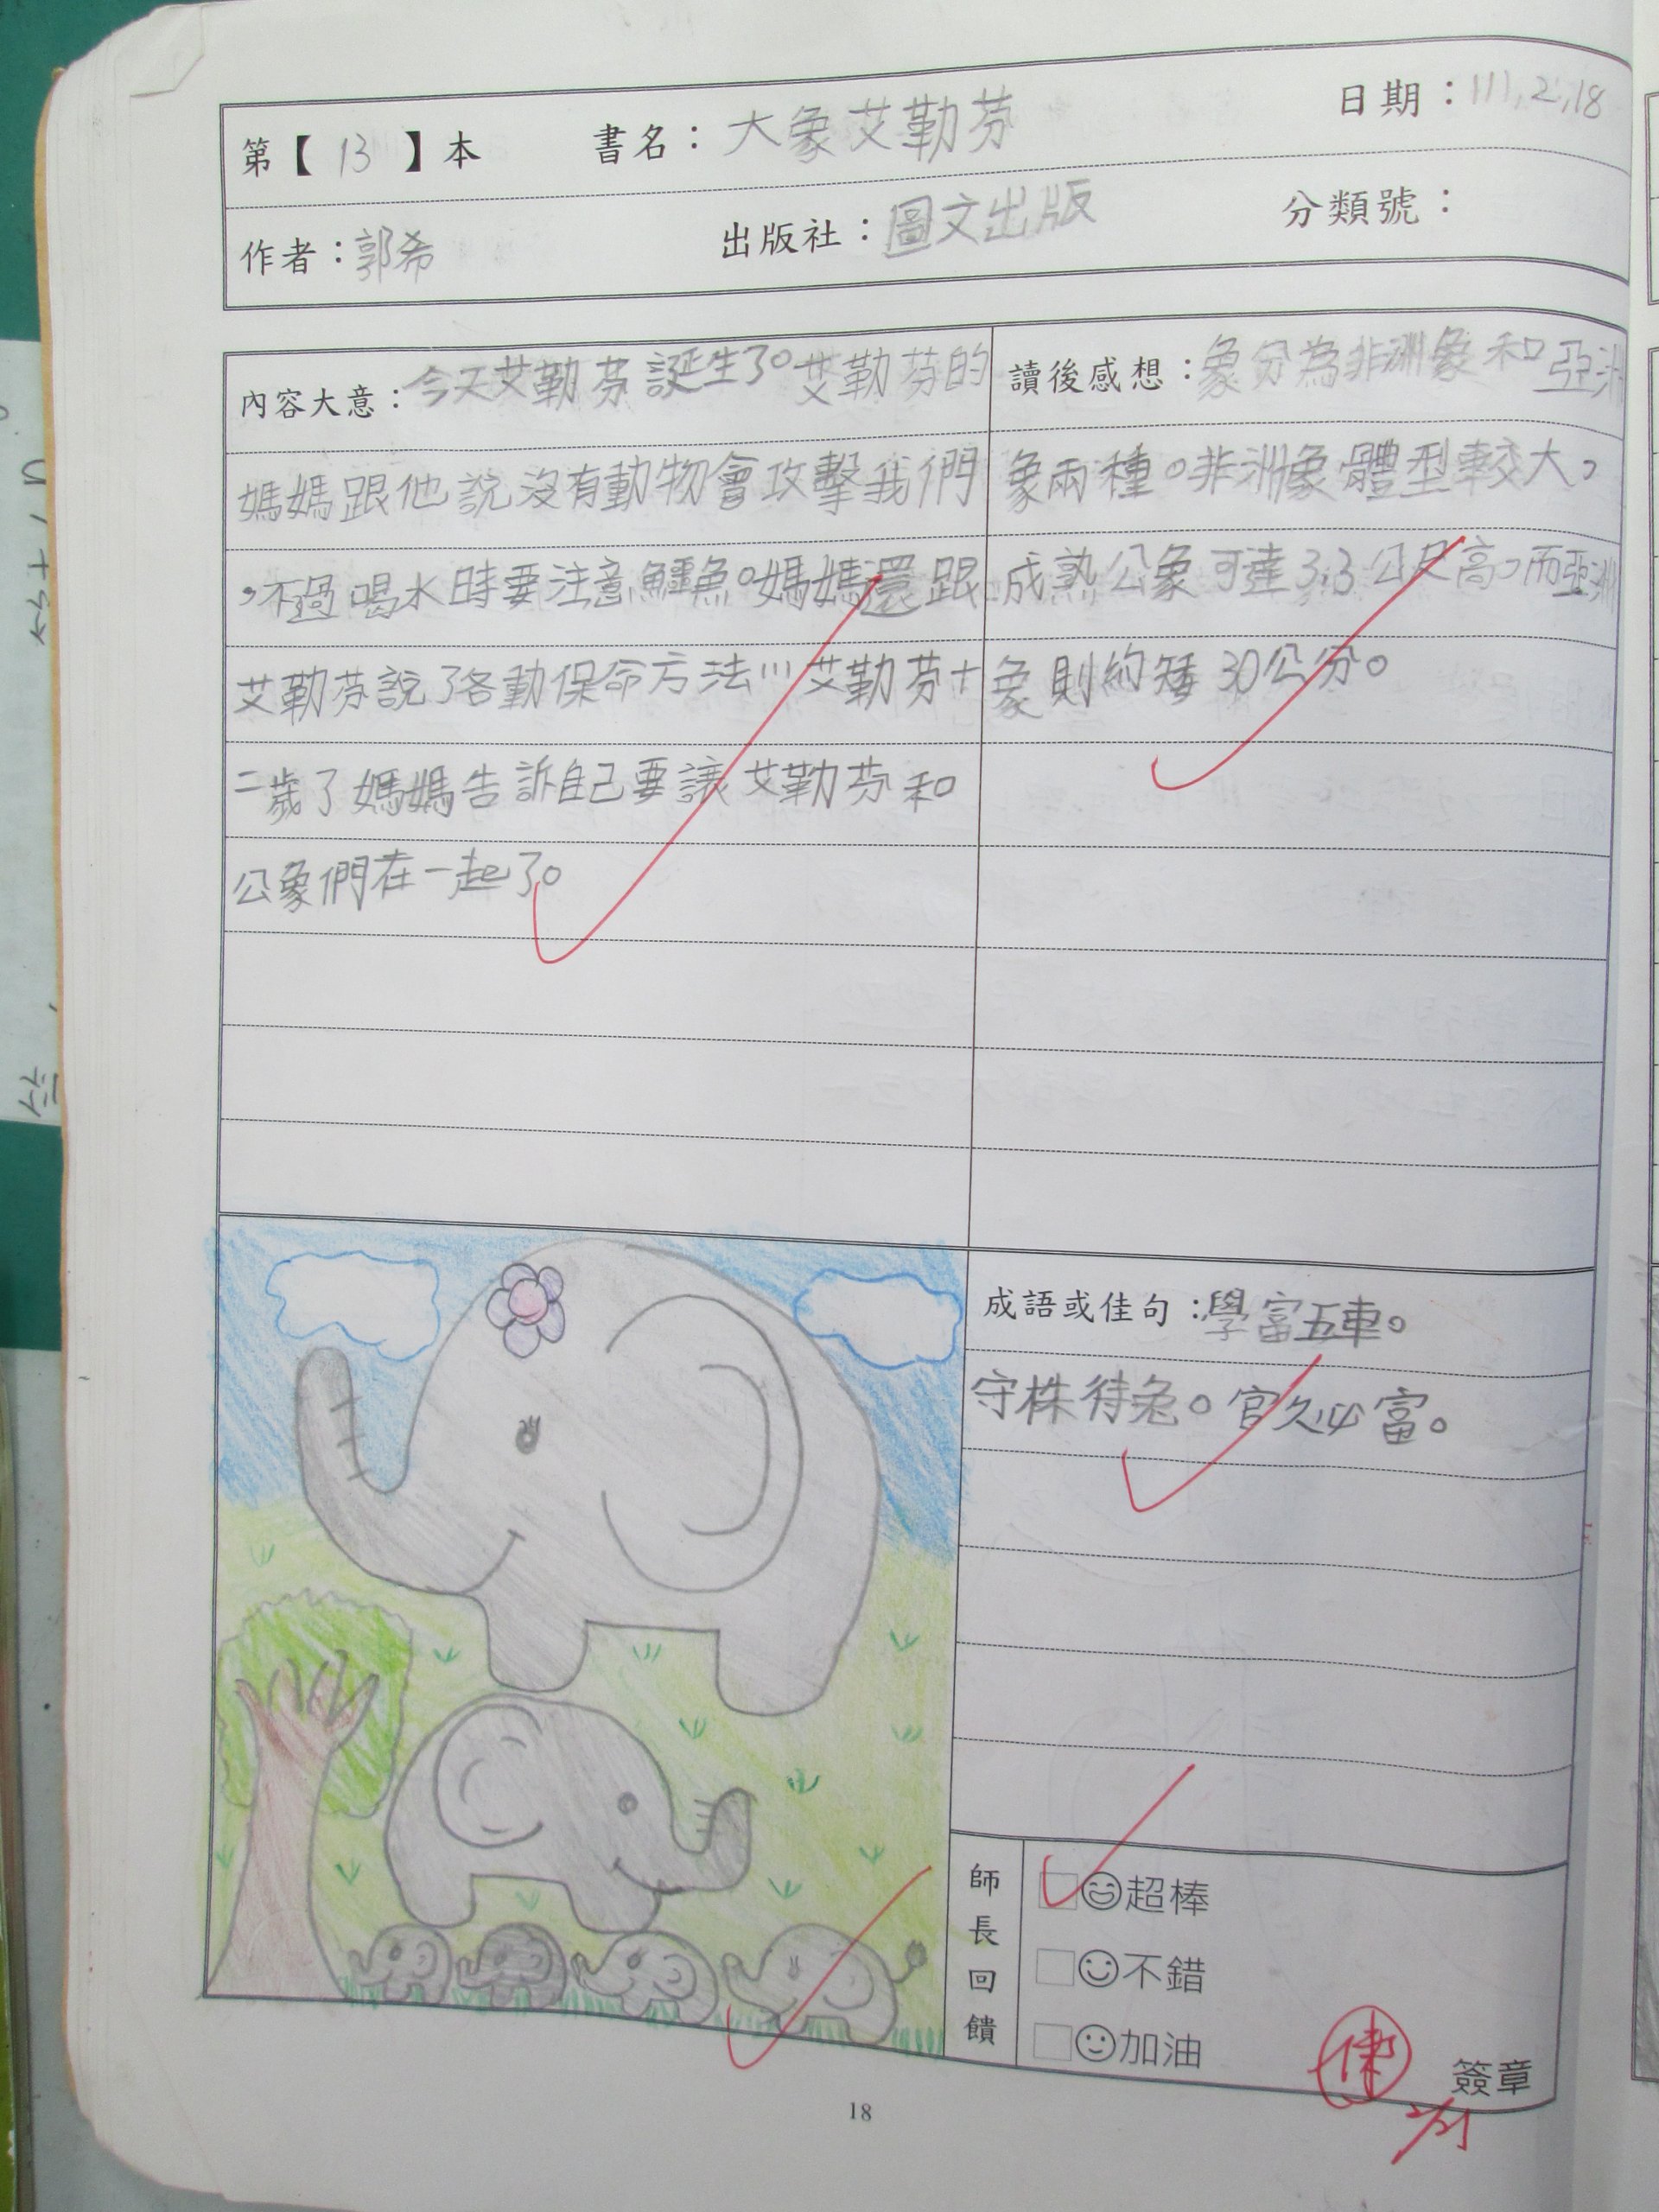 第【 13 】本 書名：大象艾勒芬 日期：111.2.18
作者：郭希 出版社：圖文出版 分類號：
內容大意：今天艾勒芬誕生了。艾勒芬的
媽媽跟他說沒有動物會攻擊我們
，不過喝水時要注意鱷魚。媽媽還跟
艾勒芬說了各動保命方法…艾勒芬十
二歲了媽媽告訴自己要讓艾勒芬和
公象們在一起了。
讀後感想：象分為非洲象和亞洲
象兩種。非洲象體型較大，
成熟公象可達3.3公尺高，而亞洲
象則約矮30公分。
成語或佳句：學富五車。
守株待兔。官久必富。
師長回饋
超棒
不錯
加油
簽章
2/21
18